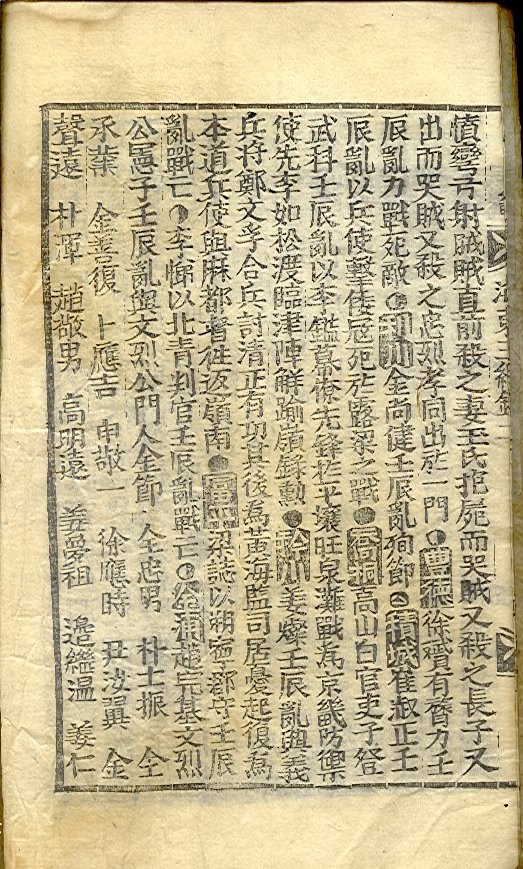 憤彎弓射賊賊直前殺之妻王氏抱屍而哭賊又殺之長子又
出而哭賊又殺之忠烈孝同出於一門 豊德 徐 有膂力壬
辰亂力戰死敵 金尚健壬辰亂殉節 積城 崔淑正壬
辰亂以兵使擊倭冦死於露梁之戰 高山白官吏子登
武科壬辰亂以李鎰幕僚先鋒於平壤旺泉灘戰為京畿防禦
使先李如松渡臨津陣鮮踰嶺錄勳 姜燦壬辰亂與義
兵將鄭文孚合兵討清正有功其後為黃海監司居憂起復為
本道兵使與麻都督徃返嶺南 梁誌以朔寧郡守壬辰
亂戰亡 李悌以北青判官壬辰亂戰亡 趙完基文烈
公憲子壬辰亂與文烈公門人全節一 全忠男 朴士振 全
承業 金善復 卜應吉 申敬一 徐應時 尹汝翼 金
聲遠 朴渾 趙敬男 高明遠 姜愛祖 邉繼温 姜仁